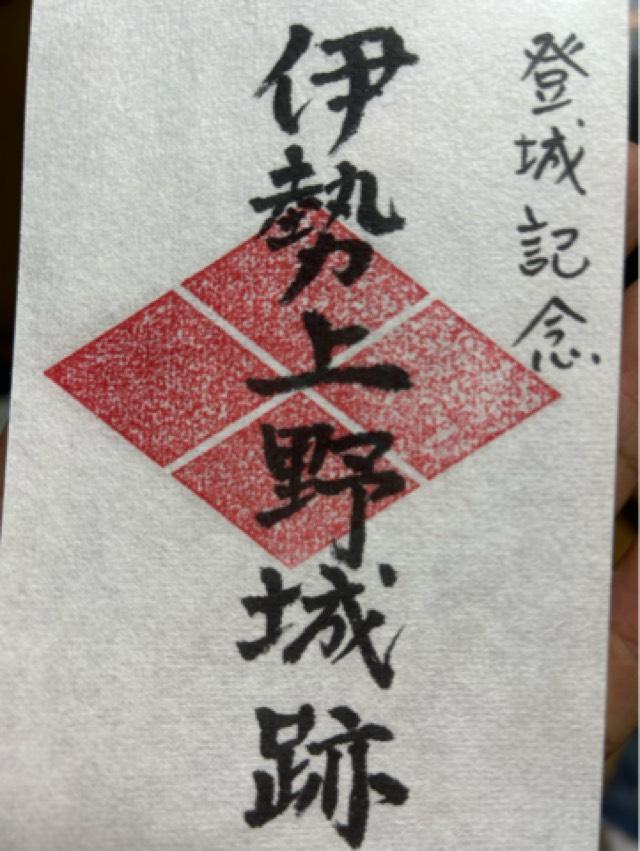 登城記念
伊勢上野城跡